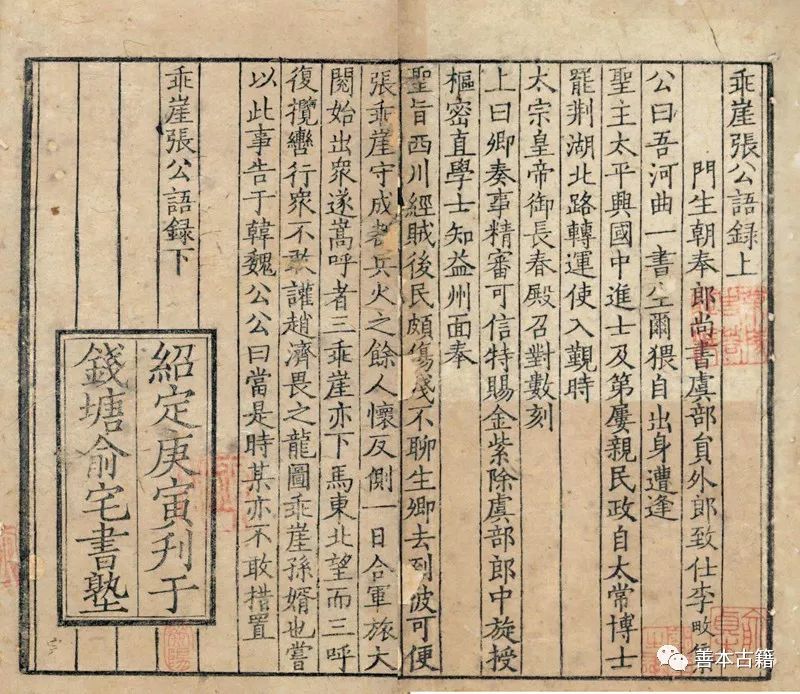 乖崖張公語録上
門生朝奉郎尚書虞部貟外郎致仕李畋
公曰吾河曲一書生爾猥自出身遭逢
聖主太平興國中進士及第屢親民政自太常博士
罷荆湖北路轉運使入覲時
太宗皇帝御長春殿召對數刻
上曰卿奏事精審可信特賜金紫除虞部郎中旋授
樞密直學士知益州面奉
聖旨西川經賊後民頗傷殘不聊生卿去到彼可便
張乖崖守成都兵火之餘人懷反側一日合軍旅大
閱始出衆遂嵩呼者三乖崖亦下馬東北望而三呼
復攬轡行衆不敢讙趙濟畏之龍圖乖崖孫婿也嘗
以此事告于韓魏公公曰當是時某亦不敢措置
乖崖張公語録下
紹定庚寅刋于
錢塘俞宅書塾
善本古籍